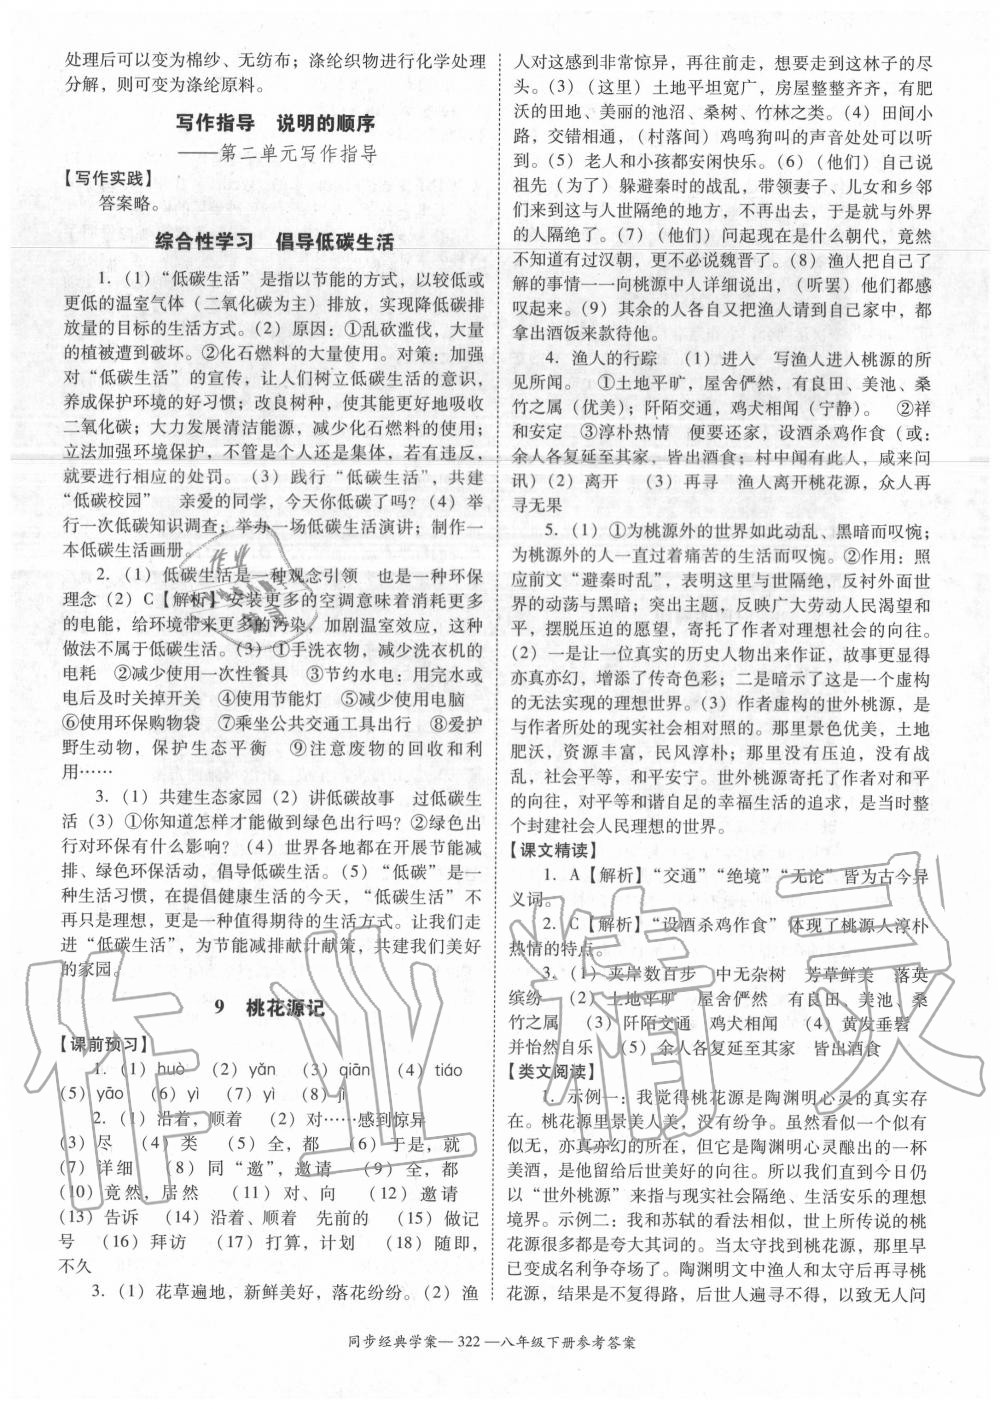 处理后可以变为棉纱、无纺布；涤纶织物进行化学处理
分解，则可变为涤纶原料。
写作指导　说明的顺序
——第二单元写作指导
【写作实践】
答案略。
综合性学习　倡导低碳生活
1.（1）“低碳生活”是指以节能的方式，以较低或
更低的温室气体（二氧化碳为主）排放，实现降低碳排
放量的目标的生活方式。（2）原因：①乱砍滥伐，大量
的植被遭到破坏。②化石燃料的大量使用。对策：加强
对“低碳生活”的宣传，让人们树立低碳生活的意识，
养成保护环境的好习惯；改良树种，使其能更好地吸收
二氧化碳；大力发展清洁能源，减少化石燃料的使用；
立法加强环境保护，不管是个人还是集体，若有违反，
就要进行相应的处罚。（3）践行“低碳生活”，共建
“低碳校园”　亲爱的同学，今天你低碳了吗？（4）举
行一次低碳知识调查；举办一场低碳生活演讲；制作一
本低碳生活画册。
2.（1）低碳生活是一种观念引领　也是一种环保
理念（2）C【解析】安装更多的空调意味着消耗更多
的电能，给环境带来更多的污染，加剧温室效应，这种
做法不属于低碳生活。（3）①手洗衣物，减少洗衣机的
电耗　②减少使用一次性餐具　③节约水电：用完水或
电后及时关掉开关　④使用节能灯　⑤减少使用电脑
⑥使用环保购物袋　⑦乘坐公共交通工具出行　⑧爱护
野生动物，保护生态平衡　⑨注意废物的回收和利
用……
3.（1）共建生态家园（2）讲低碳故事　过低碳生
活（3）①你知道怎样才能做到绿色出行吗？②绿色出
行对环保有什么影响？（4）世界各地都在开展节能减
排、绿色环保活动，倡导低碳生活。（5）“低碳”是一
种生活习惯，在提倡健康生活的今天，“低碳生活”不
再只是理想，更是一种值得期待的生活方式。让我们走
进“低碳生活”，为节能减排献计献策，共建我们美好
的家园。
9　桃花源记
【课前预习】
1.（1）huò　（2）yǎn　（3）qiān　（4）tiáo
（5）yāo　（6）yì　（7）yì　（8）jì
2.（1）沿着，顺着　（2）对……感到惊异
（3）尽　（4）类　（5）全，都　（6）于是，就
（7）详细　（8）同“邀”，邀请　（9）全，都
（10）竟然，居然　（11）对、向　（12）邀请
（13）告诉　（14）沿着、顺着　先前的　（15）做记
号　（16）拜访　（17）打算，计划　（18）随即，
不久
3.（1）花草遍地，新鲜美好，落花纷纷。（2）渔
人对这感到非常惊异，再往前走，想要走到这林子的尽
头。（3）（这里）土地平坦宽广，房屋整整齐齐，有肥
沃的田地、美丽的池沼、桑树、竹林之类。（4）田间小
路，交错相通，（村落间）鸡鸣狗叫的声音处处可以听
到。（5）老人和小孩都安闲快乐。（6）（他们）自己说
祖先（为了）躲避秦时的战乱，带领妻子、儿女和乡邻
们来到这与人世隔绝的地方，不再出去，于是就与外界
的人隔绝了。（7）（他们）问起现在是什么朝代，竟然
不知道有过汉朝，更不必说魏晋了。（8）渔人把自己了
解的事情一一向桃源中人详细说出，（听罢）他们都感
叹起来。（9）其余的人各自又把渔人请到自己家中，都
拿出酒饭来款待他。
4. 渔人的行踪　（1）进入　写渔人进入桃源的所
见所闻。　①土地平旷，屋舍俨然，有良田、美池、桑
竹之属（优美）；阡陌交通，鸡犬相闻（宁静）。　②祥
和安定　③淳朴热情　便要还家，设酒杀鸡作食（或：
余人各复延至其家，皆出酒食；村中闻有此人，咸来问
讯）（2）离开　（3）再寻　渔人离开桃花源，众人再
寻无果
5.（1）①为桃源外的世界如此动乱、黑暗而叹惋；
为桃源外的人一直过着痛苦的生活而叹惋。②作用：照
应前文“避秦时乱”，表明这里与世隔绝，反衬外面世
界的动荡与黑暗；突出主题，反映广大劳动人民渴望和
平，摆脱压迫的愿望，寄托了作者对理想社会的向往。
（2）一是让一位真实的历史人物出来作证，故事更显得
亦真亦幻，增添了传奇色彩；二是暗示了这是一个虚构
的无法实现的理想世界。（3）作者虚构的世外桃源，是
与作者所处的现实社会相对照的。那里景色优美，土地
肥沃，资源丰富，民风淳朴；那里没有压迫，没有战
乱，社会平等，和平安宁。世外桃源寄托了作者对和平
的向往，对平等和谐自足的幸福生活的追求，是当时整
个封建社会人民理想的世界。
【课文精读】
1. A【解析】“交通”“绝境”“无论”皆为古今异
义词。
2. C【解析】“设酒杀鸡作食”体现了桃源人淳朴
热情的特点。
3.（1）夹岸数百步　中无杂树　芳草鲜美　落英
缤纷　（2）土地平旷　屋舍俨然　有良田、美池、桑
竹之属　（3）阡陌交通　鸡犬相闻　（4）黄发垂髫
并怡然自乐　（5）余人各复延至其家　皆出酒食
【类文阅读】
1. 示例一：我觉得桃花源是陶渊明心灵的真实存
在。桃花源里景美人美，没有纷争。虽然看似一个似有
似无，亦真亦幻的所在，但它是陶渊明心灵酿出的一杯
美酒，是他留给后世美好的向往。所以我们直到今日仍
以“世外桃源”来指与现实社会隔绝、生活安乐的理想
境界。示例二：我和苏轼的看法相似，世上所传说的桃
花源很多都是夸大其词的。当太守找到桃花源，那里早
已变成名利争夺场了。陶渊明文中渔人和太守后再寻桃
花源，结果是不复得路，后世人遍寻不得，以致无人问
同步经典学案— 322 —八年级下册参考答案
作业精灵